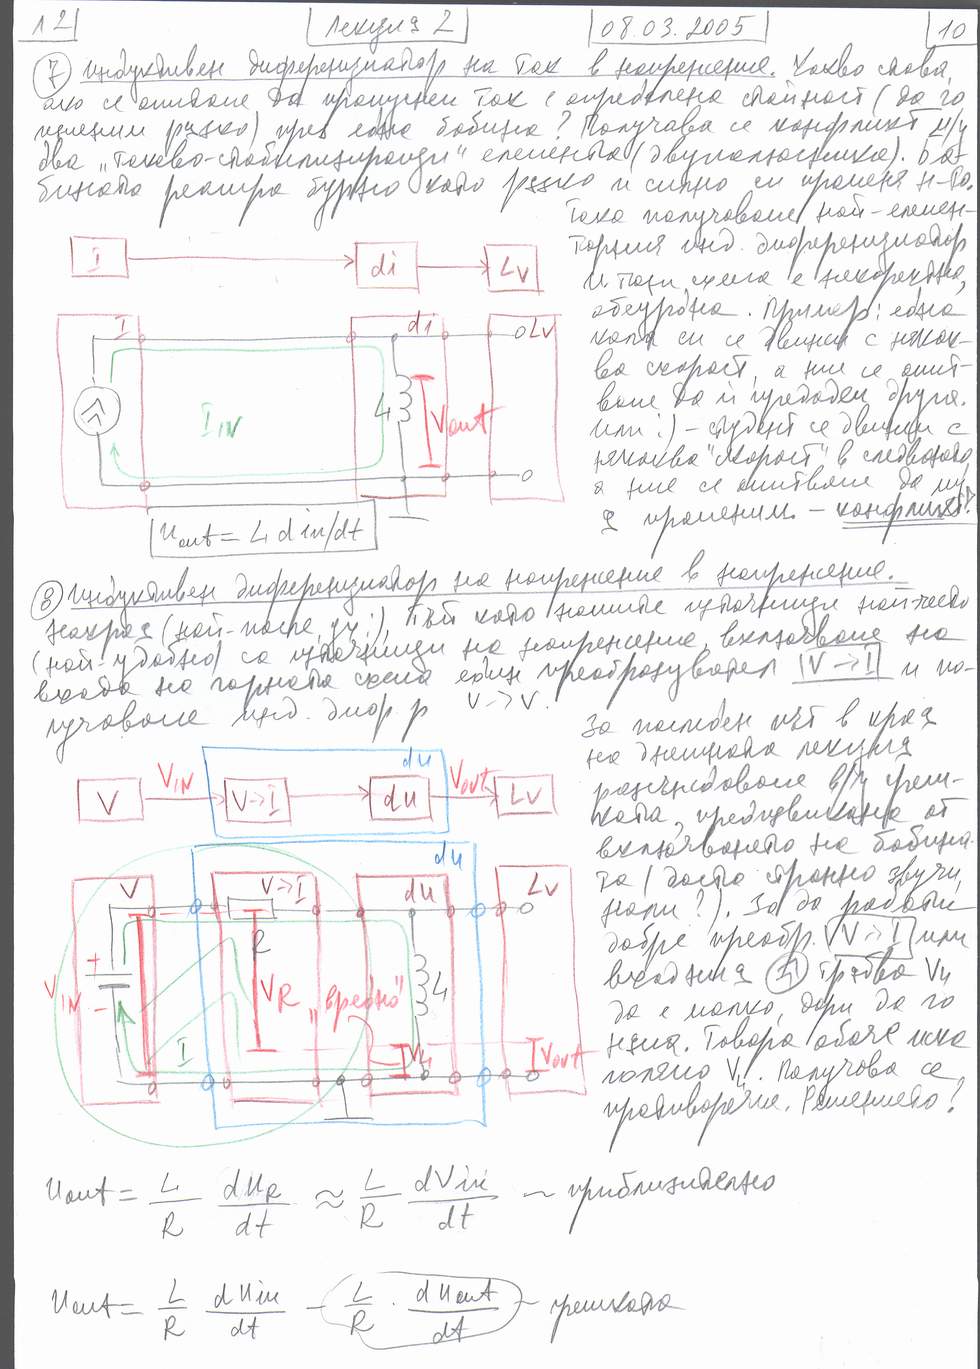 12 Лекция 2 08.03.2005 10
7 Индуктивен диференциатор на ток в напрежение. Какво става,
ако се опитваме да пропуснем ток с определена стойност (да го
променим рязко) през една бобина? Получава се конфликт м/у
два "токово-стабилизиращи" елемента (двуполюсника). Бо-
бината реагира бурно като рязко и силно си променя н-то.
Така получаваме най-елемен-
тарния инд. диференциатор
и тази схема е некоректна,
абсурдна. Пример: една
кола си се движи с някак-
ва скорост, а ние се опит-
ваме да й придадем друга.
Или :) - студент се движи с
някаква "скорост" в следването
а ние се опитваме да му
я променим. - конфликт!
I di LV
I di LV
IIN L Vout
uout = L diin/dt
8 Индуктивен диференциатор на напрежение в напрежение.
Накрая (най-после, ху :), тъй като нашите източници най-често
(най-удобно) са източници на напрежение, включваме на
входа на горната схема един преобразувател V→I и по-
лучаваме инд. диф. р V→V.
За последен път в края
на днешната лекция
разсъждаваме в/у греш-
ката, предизвикана от
включването на бобина-
та (доста странно звучи,
нали?). За да работи
добре преобр. V→I или
входния трябва VL
да е малко, дори да го
няма. Товара обаче иска
голямо VL. Получава се
противоречие. Решението?
du
V VIN V→I du Vout LV
du
V V→I du LV
R
VIN + - VR "вредно" L
I VL Vout
uout = L/R duR/dt ≈ L/R dVin/dt - приблизително
uout = L/R duin/dt - L/R . duout/dt - грешката